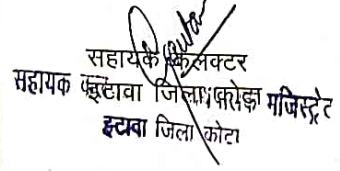 सहायक कलक्टर
सहायक इटावा जिला मजिस्ट्रेट
इटावा जिला कोटा